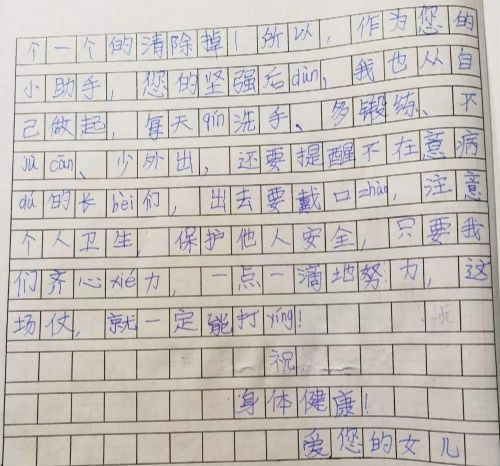 个一个的清除掉！所以，作为您的
小助手，您的坚强后dùn，我也从自
己做起，每天qín洗手、多锻练、不
jù cān、少外出，还要提醒不在意病
dú的长bèi们，出去要戴口zhào，注意
个人卫生，保护他人安全，只要我
们齐心xié力，一点一滴地努力，这
场仗，就一定能打yíng！
祝
身体健康！
爱您的女儿